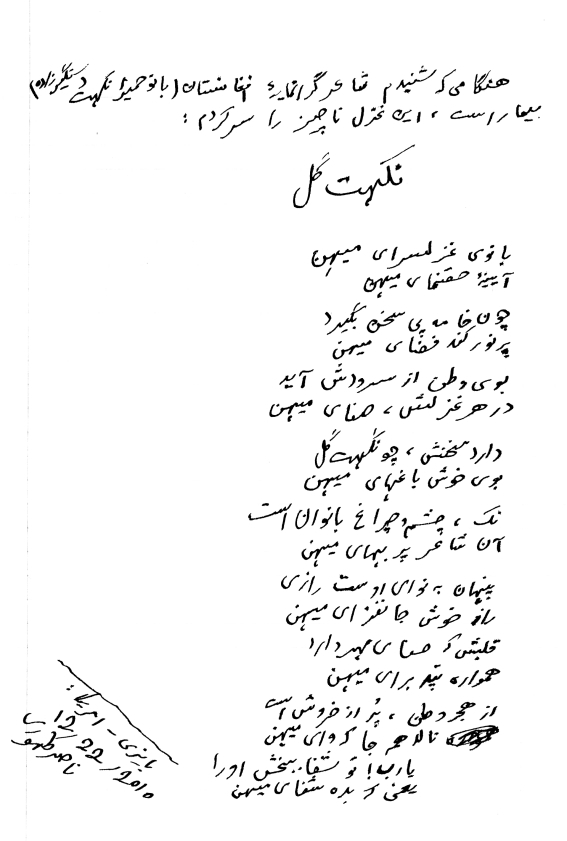 هنگامی که شنیدم شاعر گرانمایهٔ افغانستان (بانو حمیرا نکهت دستگیرزاده)
بیمار است ، این غزل ناچیز را سر کردم :
نکهت گل
بانوی غزلسرای میهن
آیینهٔ حقنمای میهن
چون خامه پی سخن بگیرد
پرنور کند فضای میهن
بوی وطن از سرودش آید
در هر غزلش ، صفای میهن
دارد سخنش ، چو نکهت گل
بوی خوش باغهای میهن
نک ، چشم و چراغ بانوان است
آن شاعر پر بهای میهن
پنهان به نوای اوست رازی
راز خوش جانفزای میهن
قلبش که صفای مهر دارد
همواره تپد برای میهن
از هجر وطن ، پُر از خروش است
نالد همه جا که وای میهن
یارب! تو شفا ببخش او را
یعنی که بده شفای میهن
امریکا :
12/22/2010
ناصر